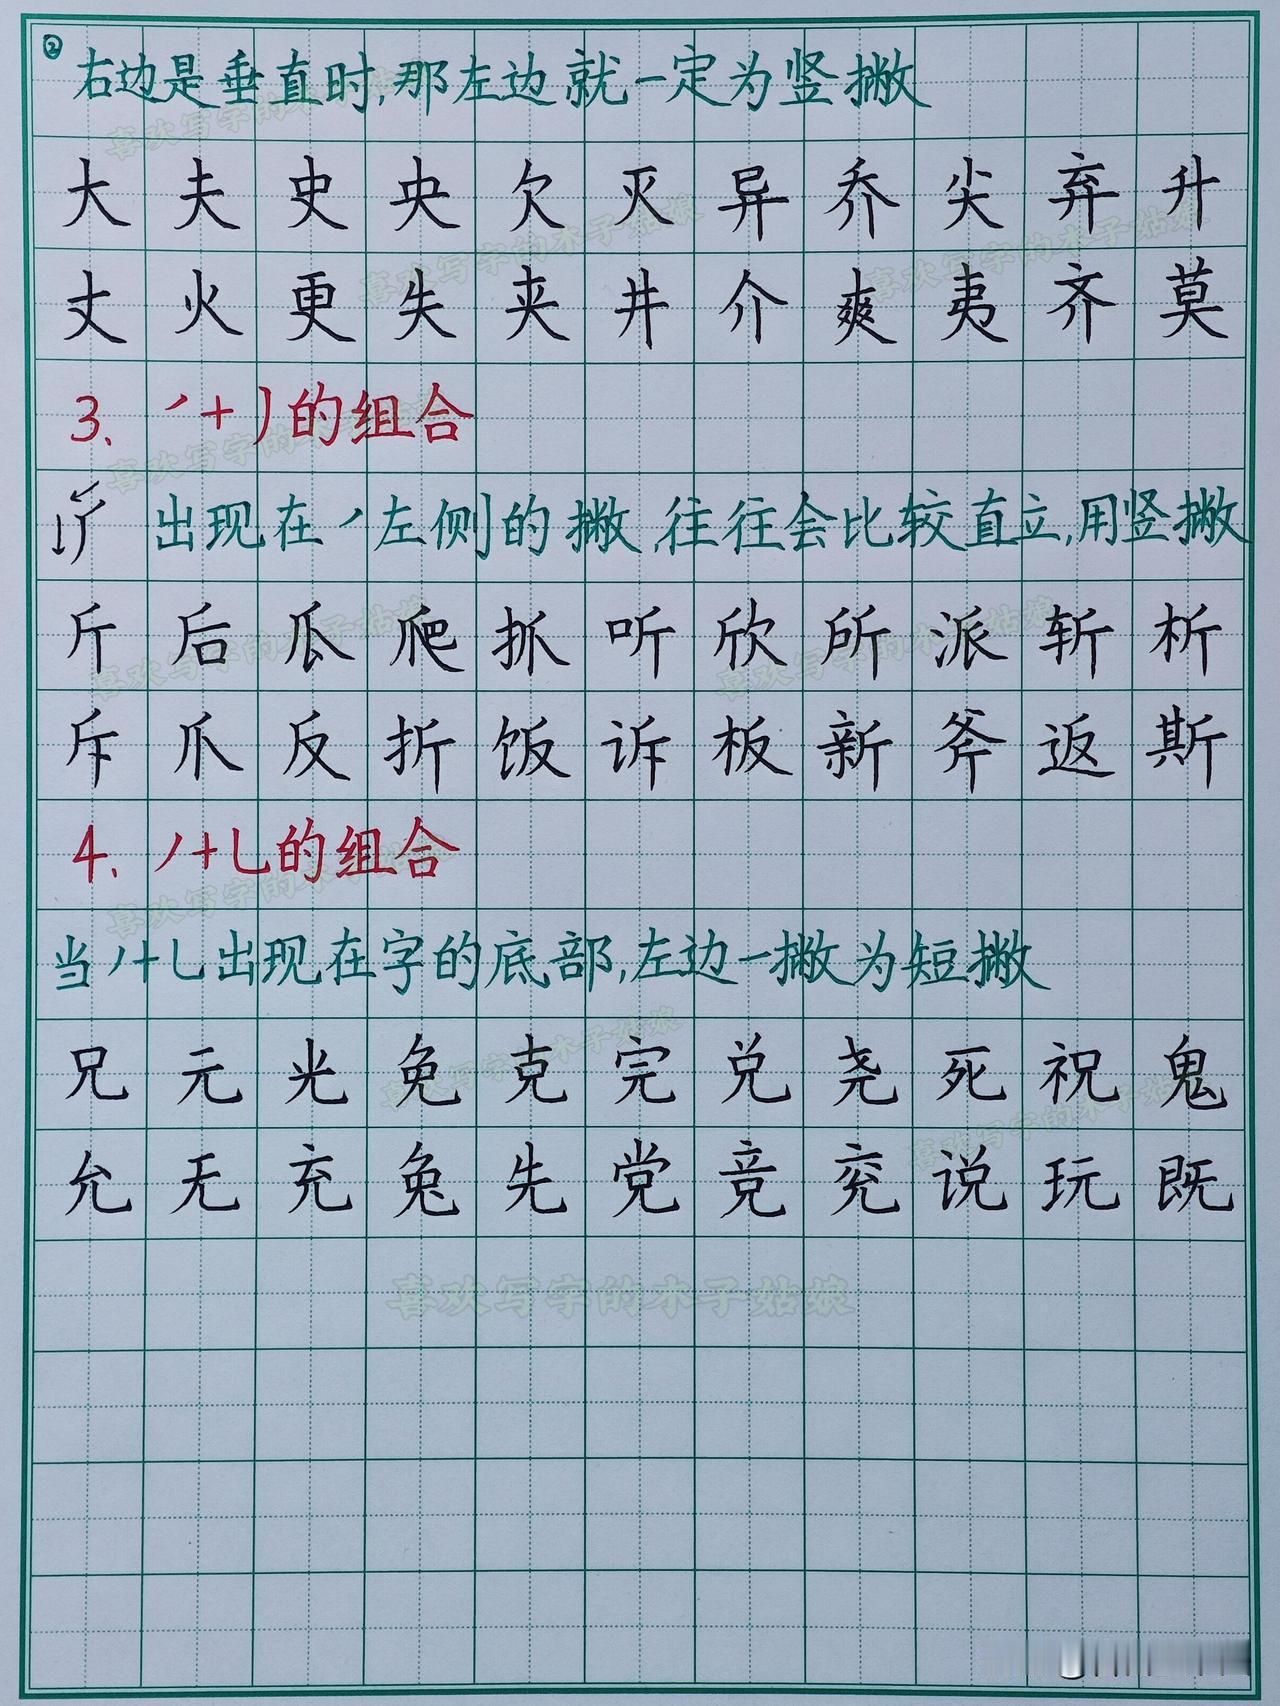 ② 右边是垂直时,那左边就一定为竖撇
大 夫 史 央 欠 灭 异 乔 尖 弃 升
丈 火 更 失 夹 井 介 爽 夷 齐 莫
3、㇒+丿的组合
出现在㇒左侧的撇,往往会比较直立,用竖撇
斤 后 瓜 爬 抓 听 欣 所 派 斩 析
斥 爪 反 折 饭 诉 板 新 斧 返 斯
4、丿+乚的组合
当丿+乚出现在字的底部,左边一撇为短撇
兄 元 光 免 克 完 兑 尧 死 祝 鬼
允 无 充 兔 先 党 竞 兖 说 玩 既
喜欢写字的木子姑娘